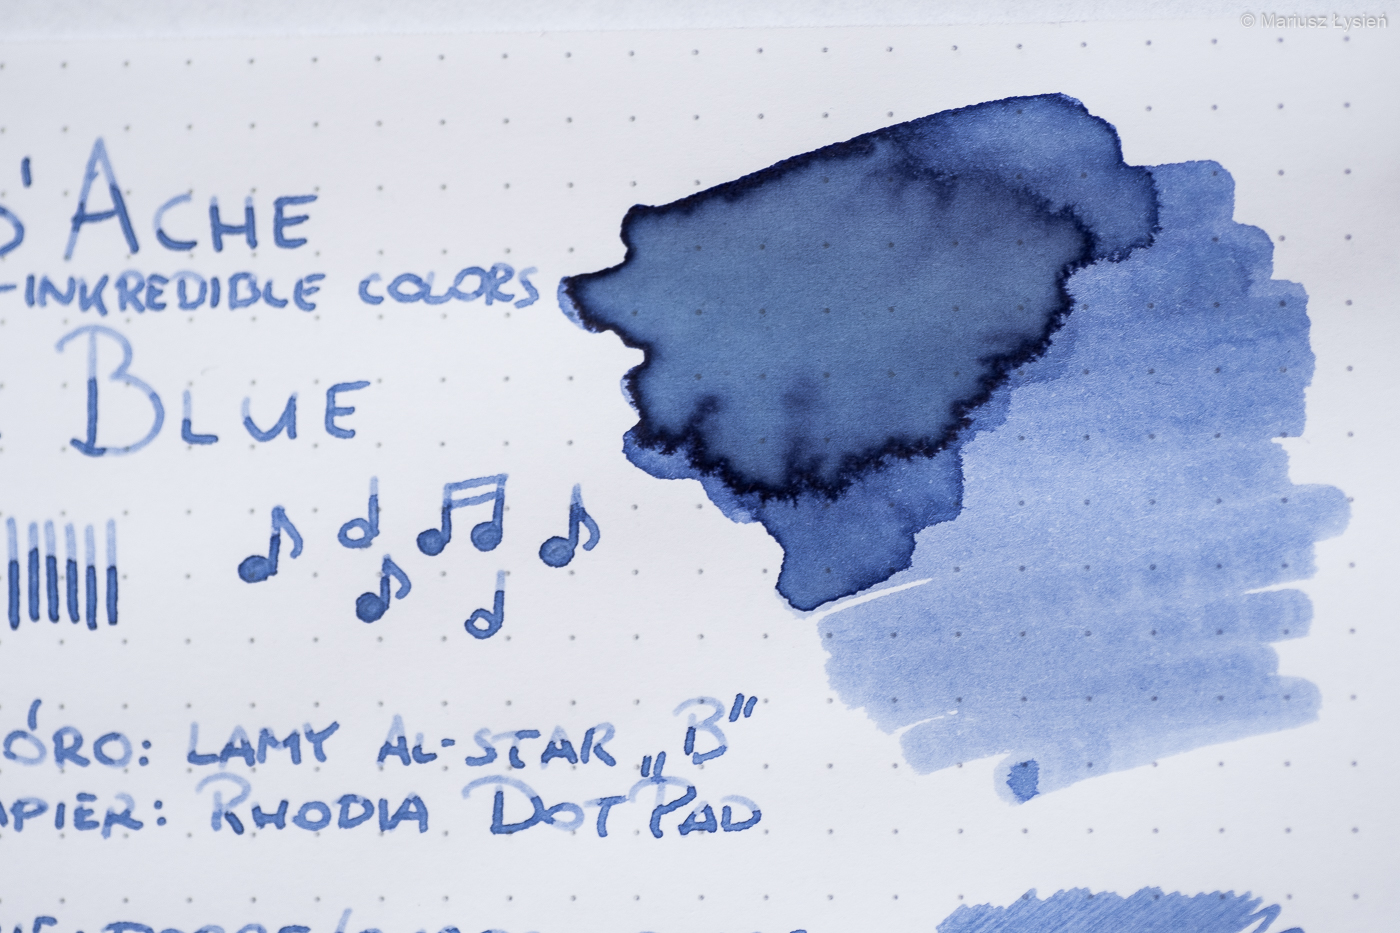 © Mariusz Łysień
D'ACHE
-INKREDIBLE COLORS
BLUE
ÓRO: LAMY AL-STAR „B”
APIER: RHODIA DOTPAD